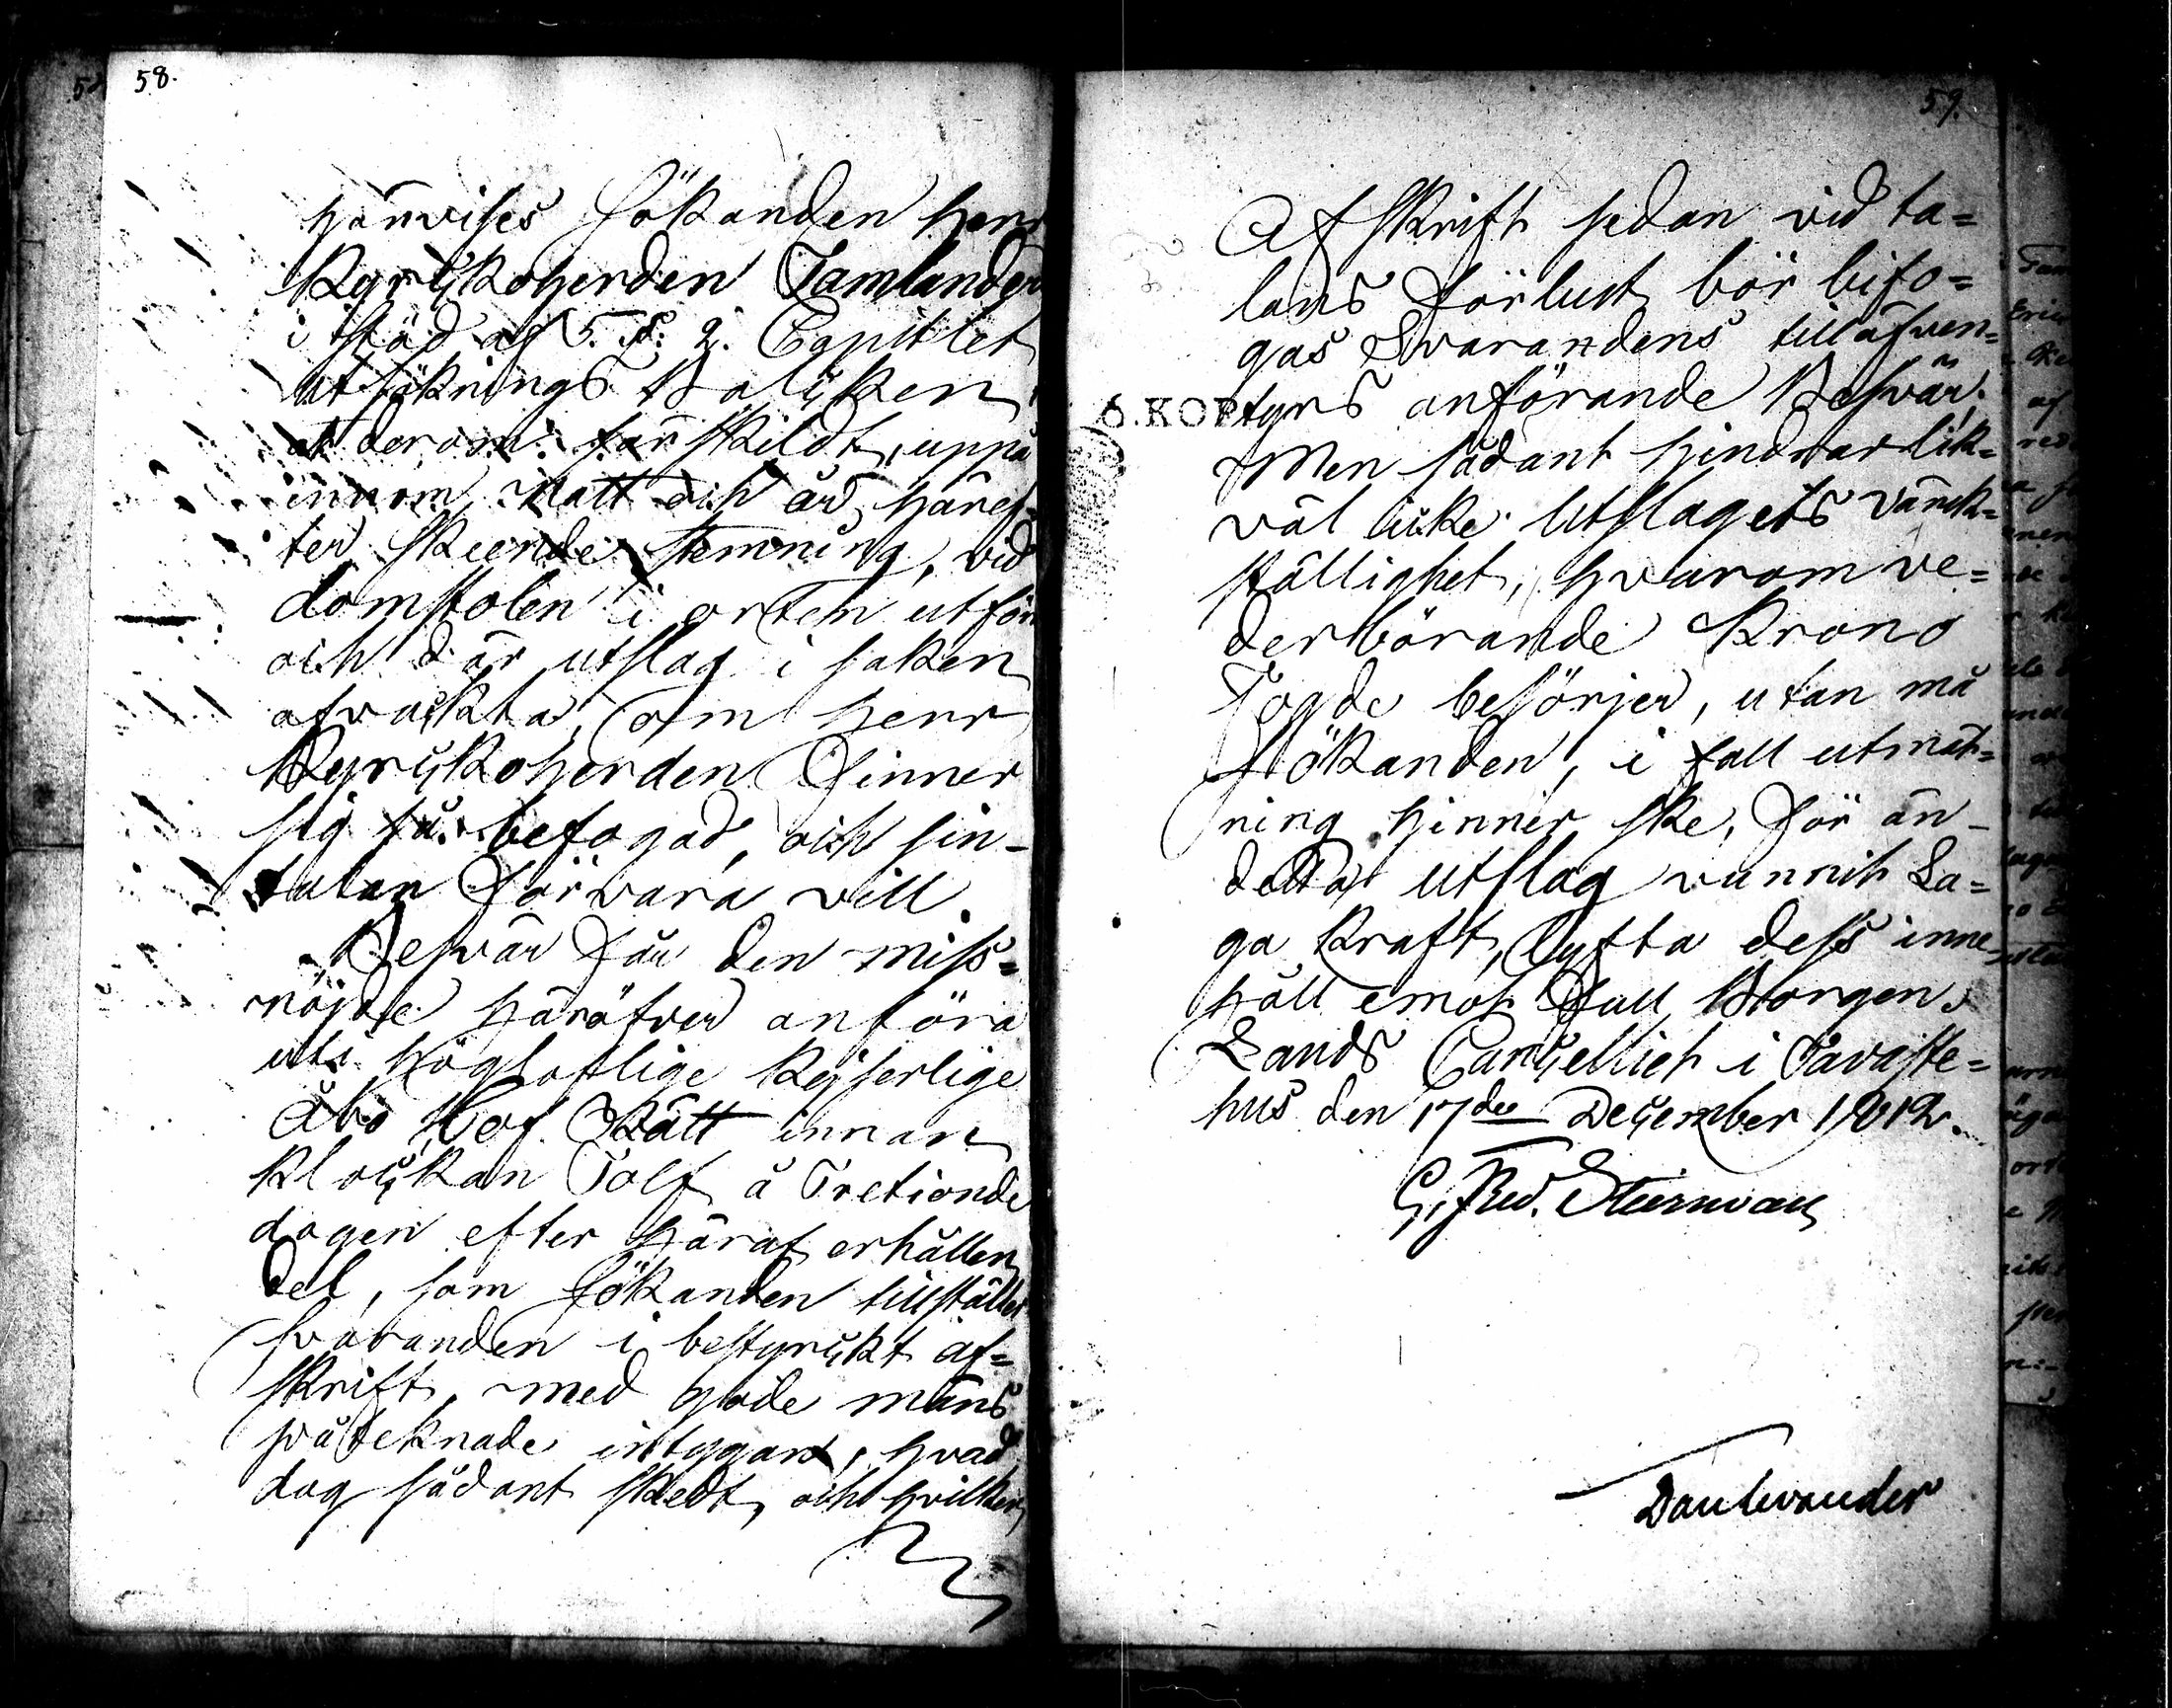 58.
hänvises Sökanden Herr
Kyrckoherden Tamlander
i stöd af 5. §. 2. Capitlet
Utsöknings Balcken,
at derom särskildt, uppå
innom Natt och år häref-
ter skeende stemning, vid
domstolen i orten utföra
och där utslag i saken
afvackta, om Herr
Kyrckoherden finner
sig få befogad, och sin
talan förvara vill.
Besvär får den miss=
nöjde häröfver anföra
uti Högloflige Kejserlige
Åbo Hof Rätt innan
klockan Tolf å Tretionde
dagen efter häraf erhållen
del, som Sökanden tillställer
Svaranden i bestyrckt af=
skrift, med gode mäns
påteknade intygan, hvad
dag sådant skedt, och hvilken
59.
Afskrift sedan vid ta=
lans förlust bör bifo=
gas Svarandens tilläfven=
tyrs anförande Besvär.
Men sådant hindrar lik=
väl icke Utslagets värck=
ställighet, hvarom ve=
derbörande Krono
Fogde besörjer, utan må
Sökanden, i fall utmät=
ning hinner ske, för än
detta utslag vunnit La=
ga kraft, lyfta dess inne
håll emot full Borgen.
Lands Cancelliet i Tavaste=
hus den 17de December 1812.
G. Fred. Stiernvall